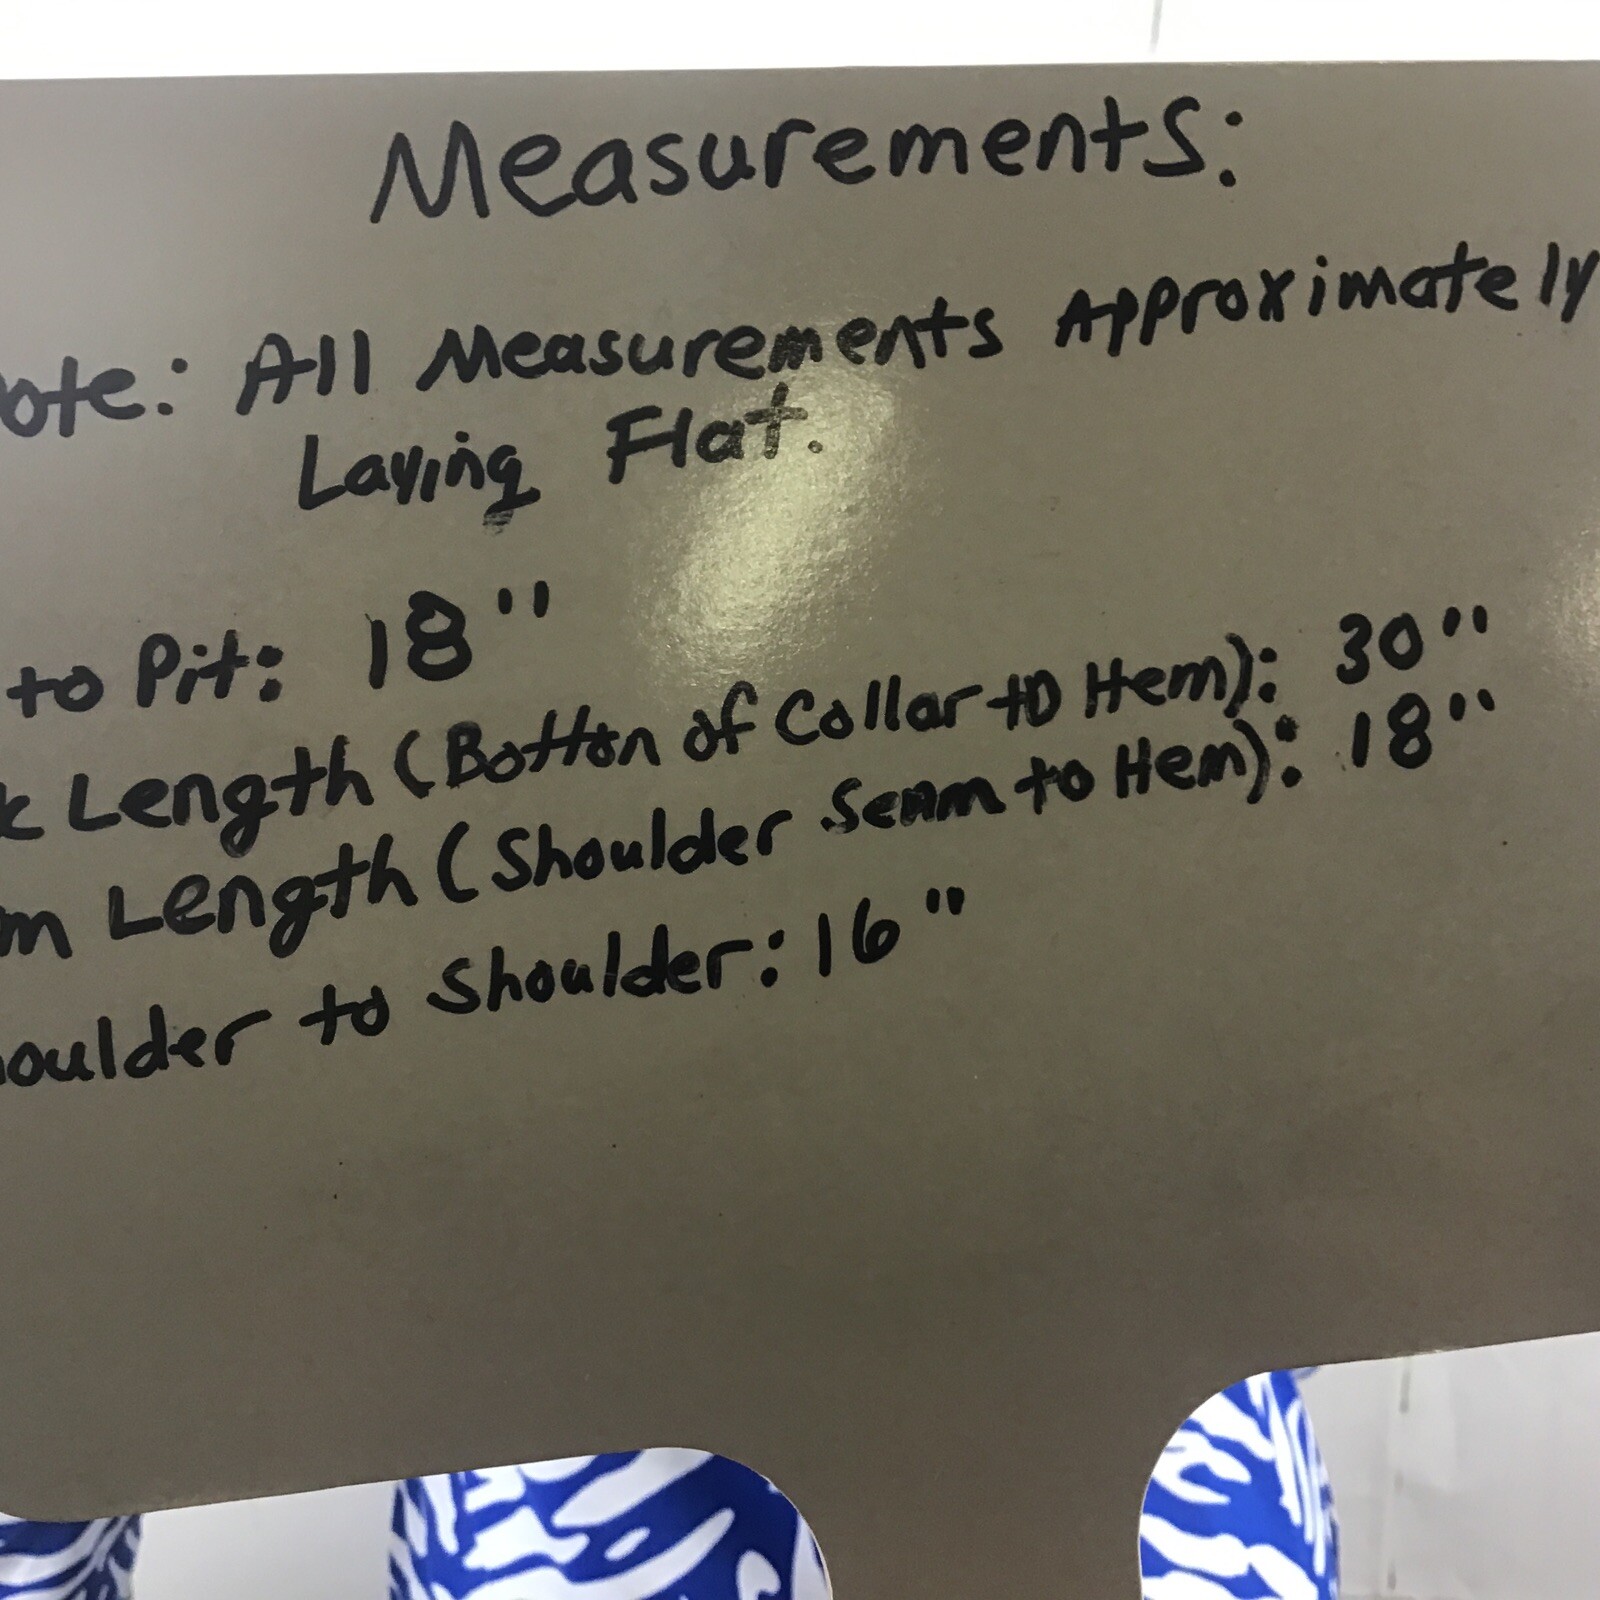 Measurements:
ote: All Measurements Approximately
Laying Flat.
to Pit: 18"
k Length (Botton of Collar to Hem): 30"
m Length (Shoulder Seam to Hem): 18"
houlder to Shoulder: 16"